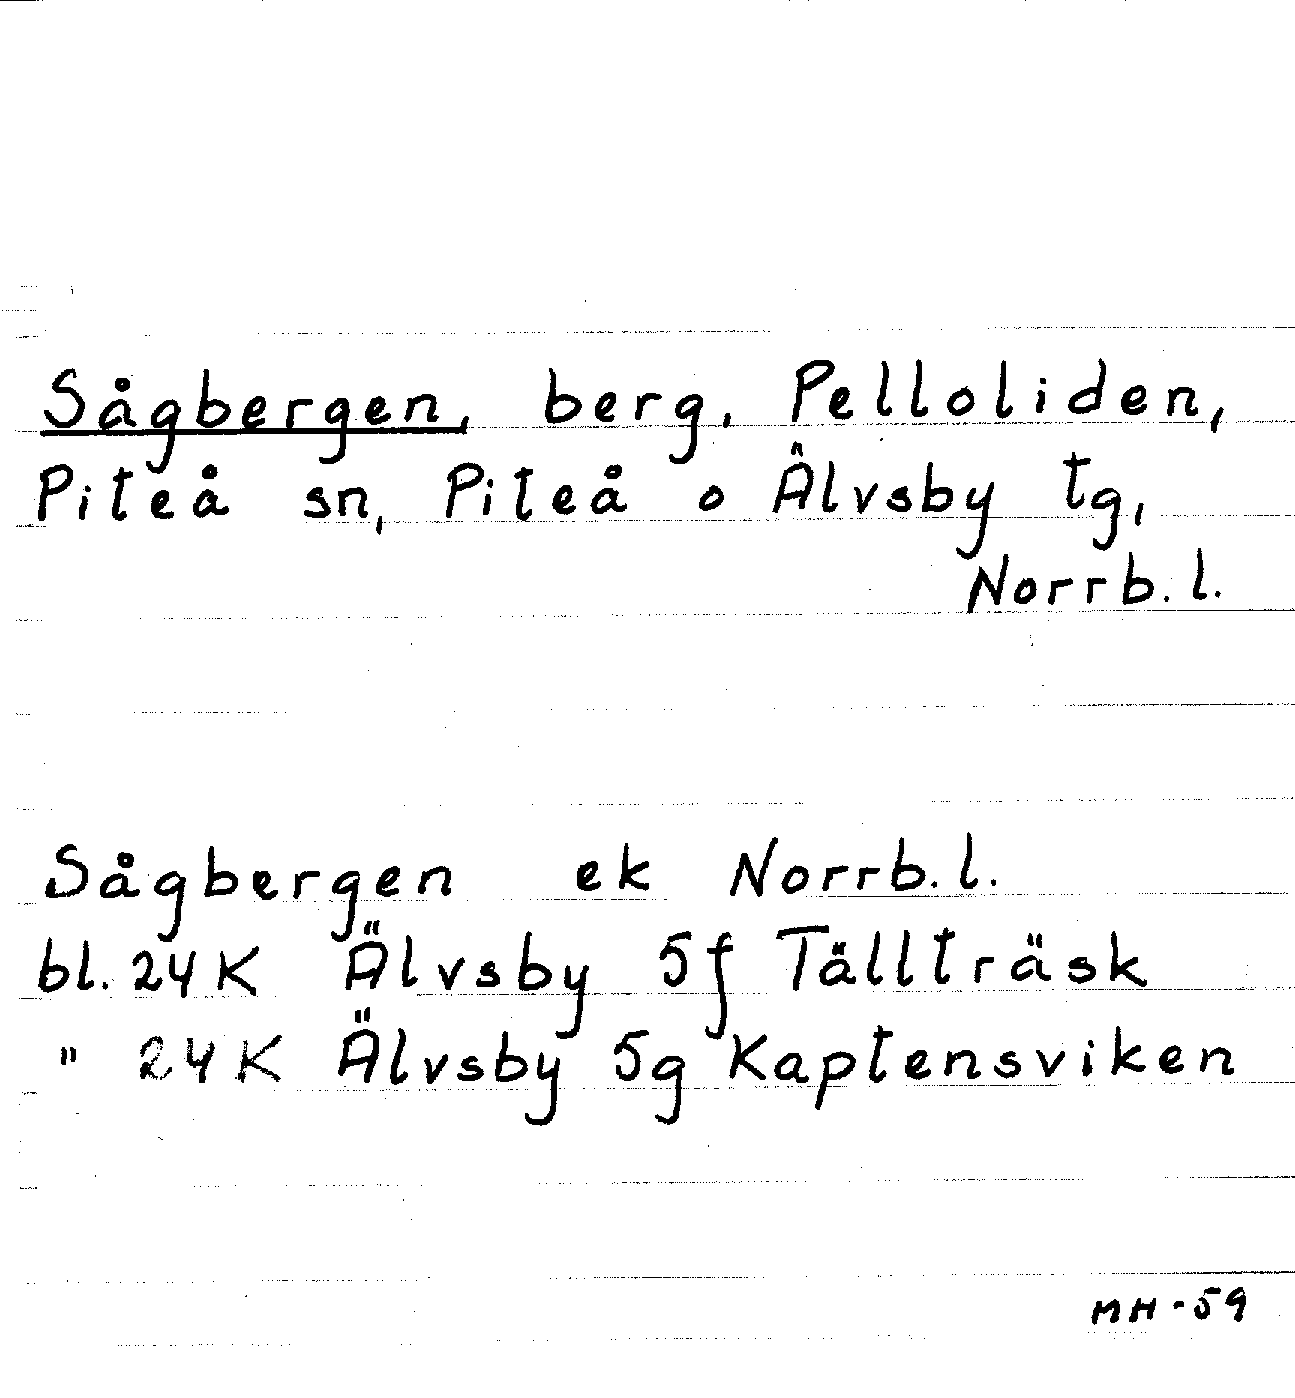 Sågbergen, berg, Pelloliden,
Piteå sn, Piteå o Älvsby tg,
Norrb.l.
Sågbergen ek Norrb.l.
bl. 24K Älvsby 5f Tällträsk
" 24K Älvsby 5g Kaptensviken
MH-59